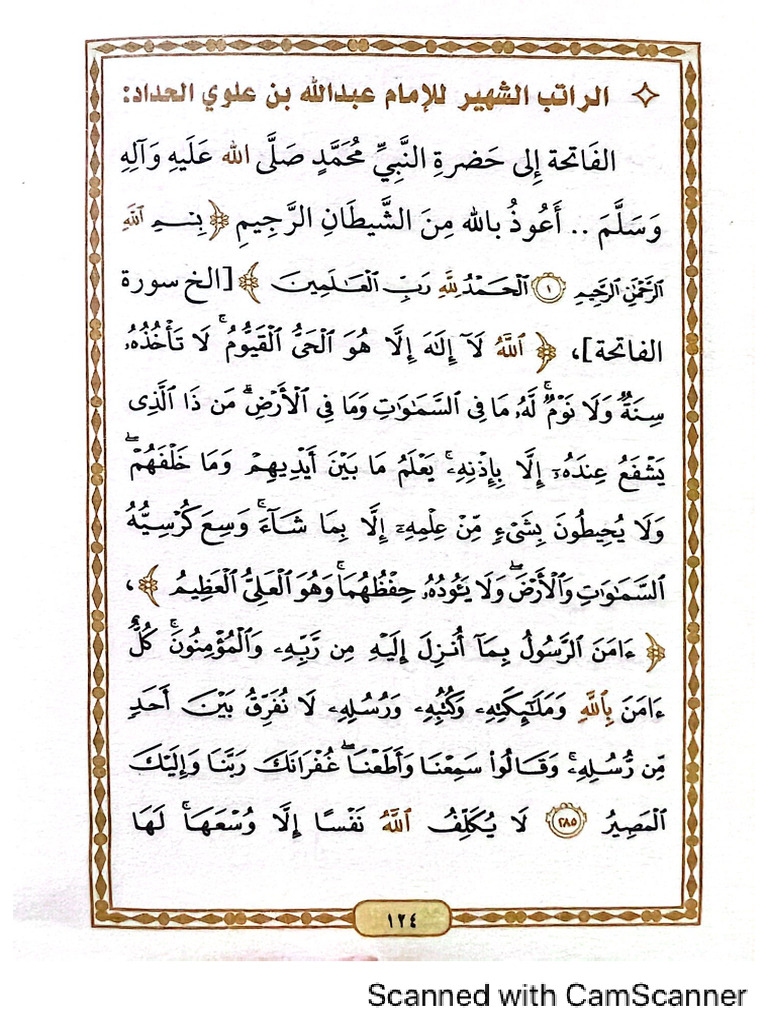 ✧ الراتب الشهير للإمام عبدالله بن علوي الحداد:
الفَاتحة إِلى حَضرةِ النَّبِيِّ مُحَمَّدٍ صَلَّى الله عَلَيهِ وَآلِهِ
وَسَلَّمَ .. أَعُوذُ بالله مِنَ الشَّيطَانِ الرَّجِيمِ ﴿ بِسْمِ ٱللَّهِ
ٱلرَّحْمَٰنِ ٱلرَّحِيمِ ١ ٱلْحَمْدُ لِلَّهِ رَبِّ ٱلْعَـٰلَمِينَ ﴾ [الخ سورة
الفاتحة]، ﴿ ٱللَّهُ لَآ إِلَـٰهَ إِلَّا هُوَ ٱلْحَىُّ ٱلْقَيُّومُ ۚ لَا تَأْخُذُهُۥ
سِنَةٌ وَلَا نَوْمٌ ۚ لَّهُۥ مَا فِى ٱلسَّمَـٰوَٰتِ وَمَا فِى ٱلْأَرْضِ ۗ مَن ذَا ٱلَّذِى
يَشْفَعُ عِندَهُۥٓ إِلَّا بِإِذْنِهِۦ ۚ يَعْلَمُ مَا بَيْنَ أَيْدِيهِمْ وَمَا خَلْفَهُمْ ۖ
وَلَا يُحِيطُونَ بِشَىْءٍ مِّنْ عِلْمِهِۦٓ إِلَّا بِمَا شَآءَ ۚ وَسِعَ كُرْسِيُّهُ
ٱلسَّمَـٰوَٰتِ وَٱلْأَرْضَ ۖ وَلَا يَـُٔودُهُۥ حِفْظُهُمَا ۚ وَهُوَ ٱلْعَلِىُّ ٱلْعَظِيمُ ﴾،
﴿ ءَامَنَ ٱلرَّسُولُ بِمَآ أُنزِلَ إِلَيْهِ مِن رَّبِّهِۦ وَٱلْمُؤْمِنُونَ ۚ كُلٌّ
ءَامَنَ بِٱللَّهِ وَمَلَـٰٓئِكَتِهِۦ وَكُتُبِهِۦ وَرُسُلِهِۦ لَا نُفَرِّقُ بَيْنَ أَحَدٍ
مِّن رُّسُلِهِۦ ۚ وَقَالُوا۟ سَمِعْنَا وَأَطَعْنَا ۖ غُفْرَانَكَ رَبَّنَا وَإِلَيْكَ
ٱلْمَصِيرُ ٢٨٥ لَا يُكَلِّفُ ٱللَّهُ نَفْسًا إِلَّا وُسْعَهَا ۚ لَهَا
١٢٤
Scanned with CamScanner